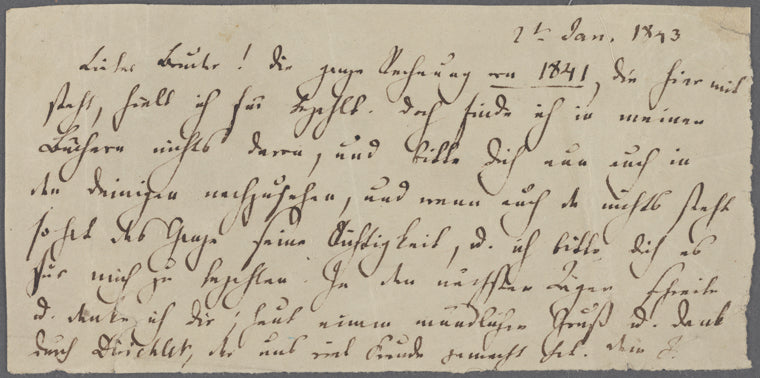 2t Jan. 1843
Lieber Bruder! die ganze Rechnung von 1841, die hier mit
steht, hielt ich für bezahlt. Doch finde ich in meinen
Büchern nichts davon, und bitte Dich nun auch in
den Deinigen nachzusehen, und wenn auch da nichts steht
so hat das Ganze seine Richtigkeit, u. ich bitte Dich es
für mich zu bezahlen. In den nächsten Tagen schreibe
u. danke ich Dir, heut einen mündlichen Gruß u. Dank
durch Dirichlet, der uns viel Freude gemacht hat. Dein